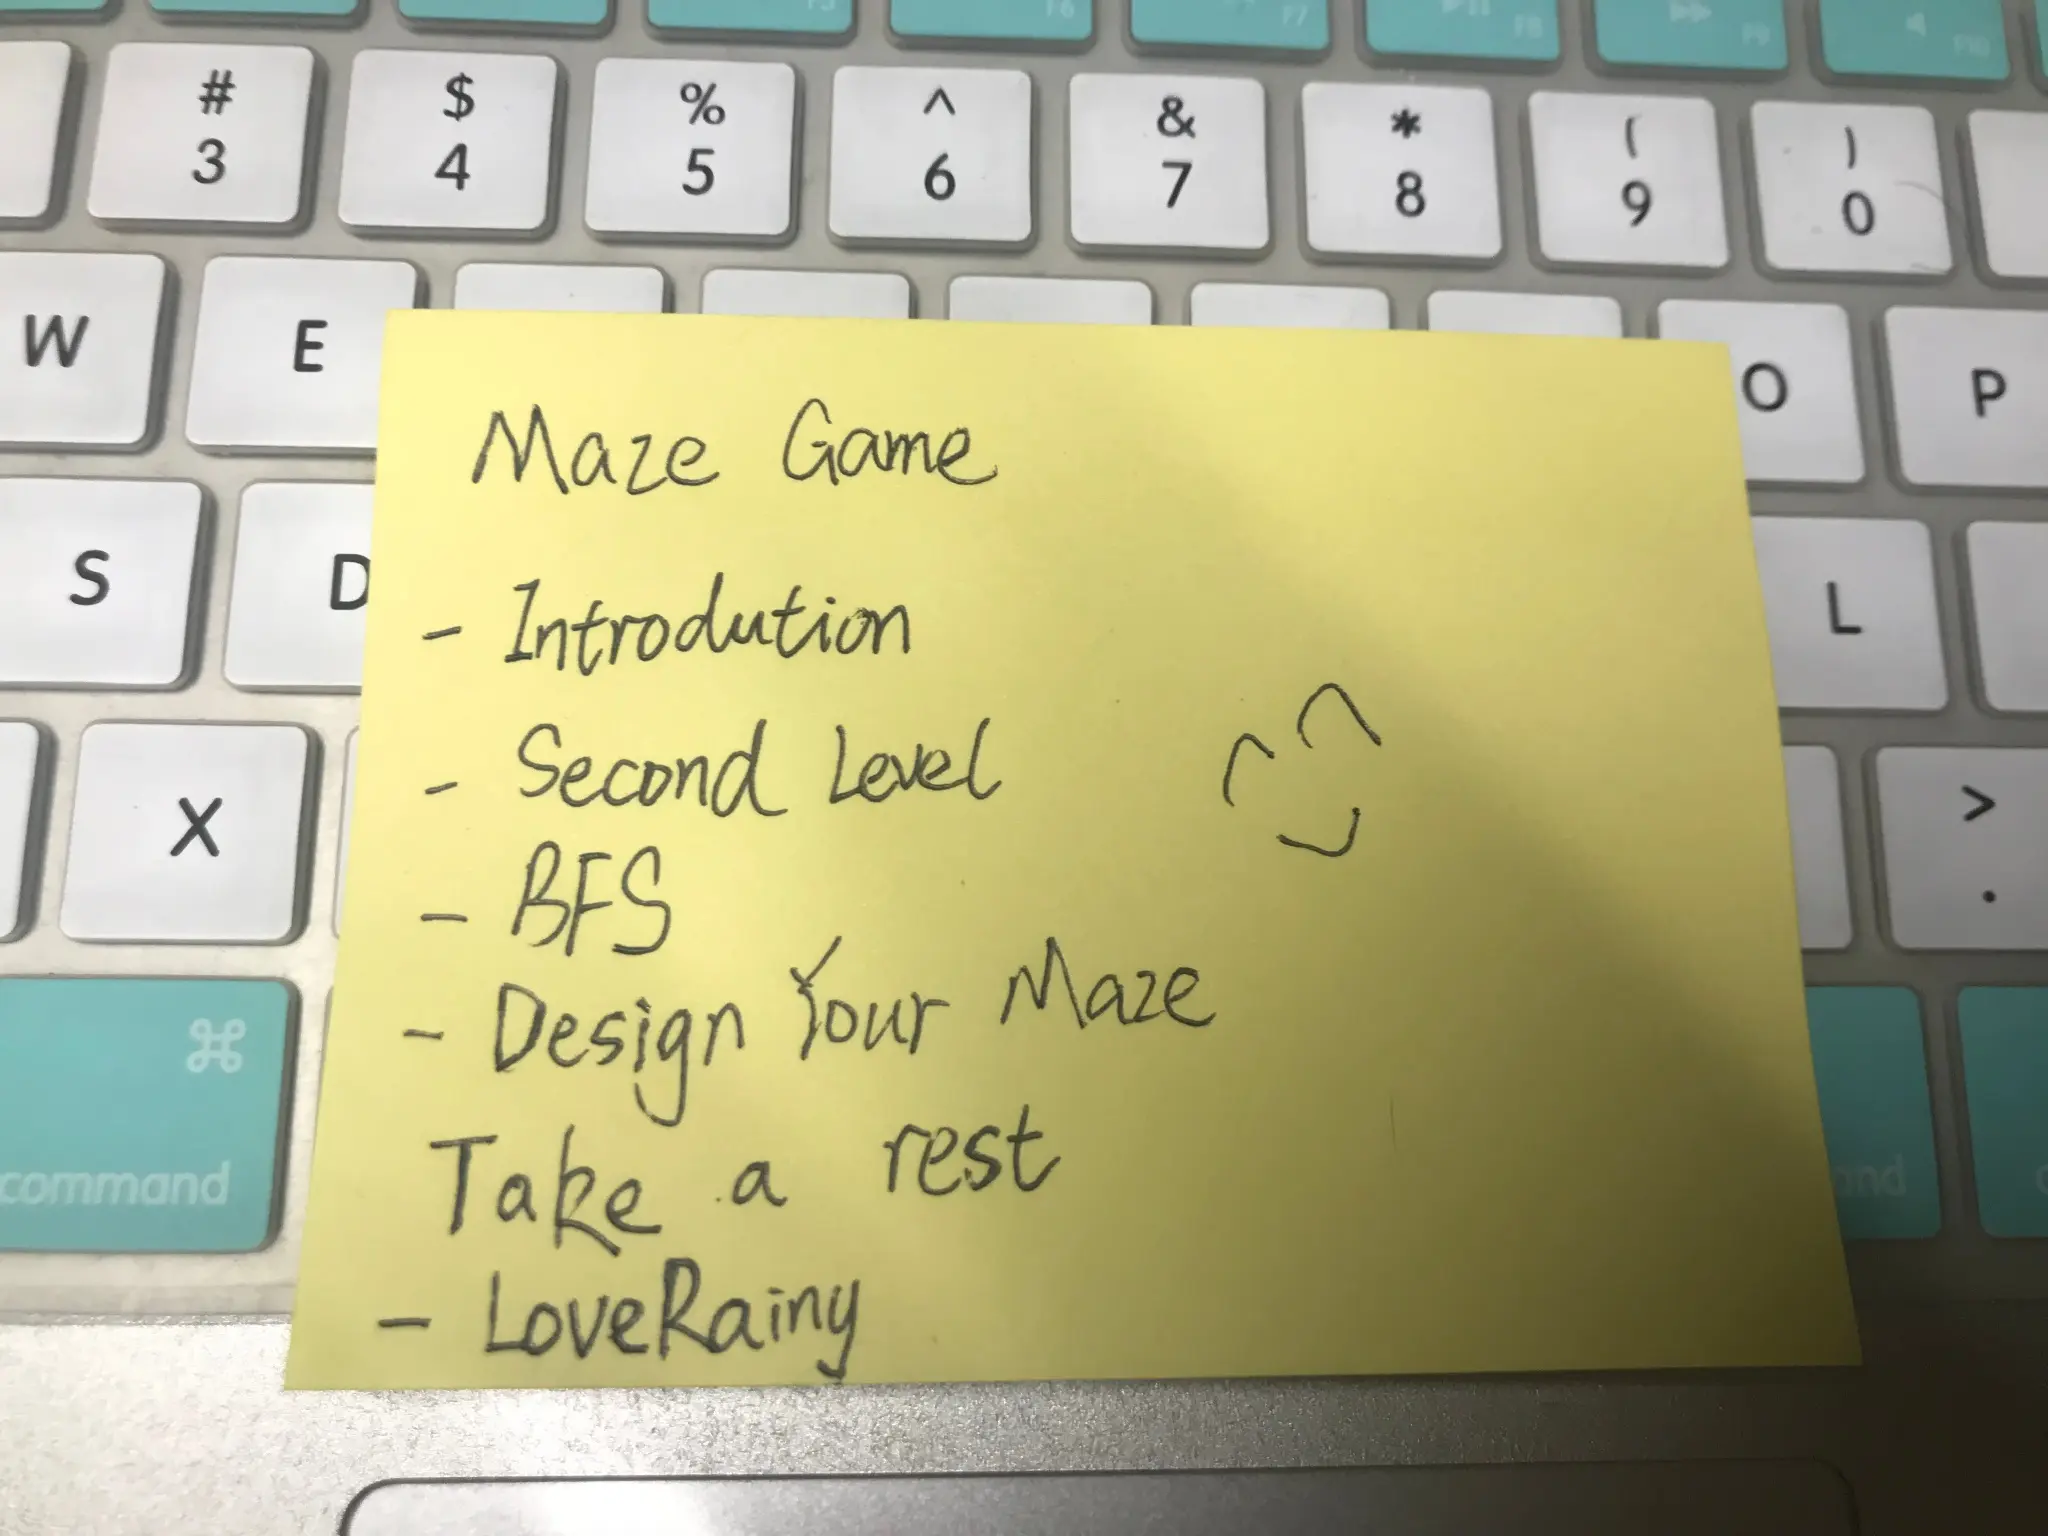 F5 F6 F7 F8 F9 F10
# $ % ^ & * ( )
3 4 5 6 7 8 9 0
W E O P
S D L
X > .
⌘
command
Maze Game
- Introdution
- Second Level
- BFS
- Design Your Maze
Take a rest
- LoveRainy